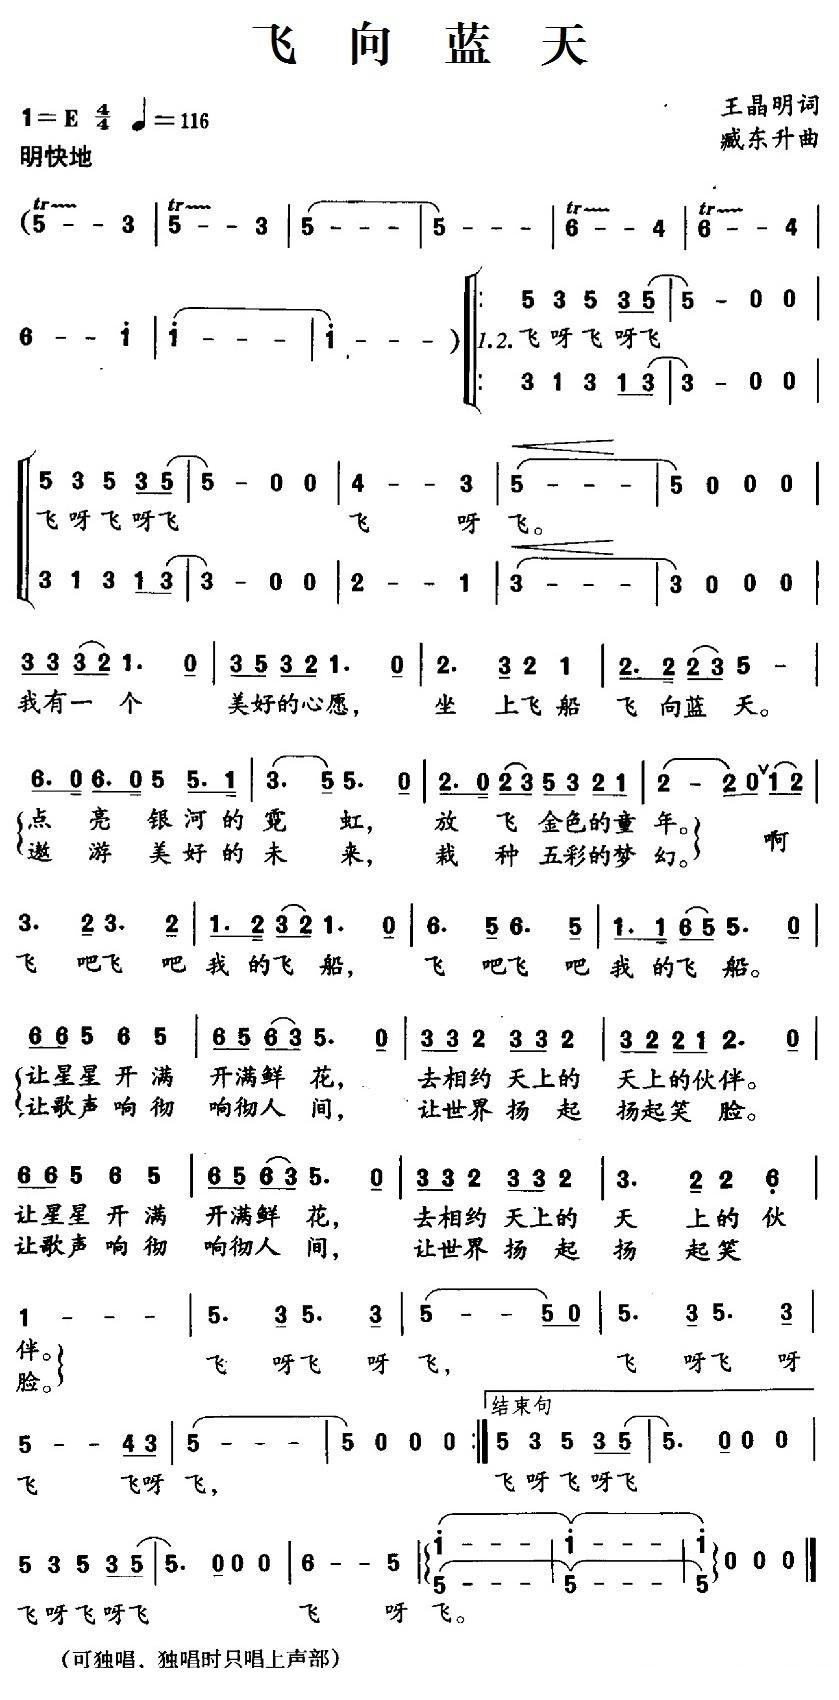 飞 向 蓝 天
1=E 4/4 ♩=116
王晶明词
明快地
臧东升曲
(5 - - 3 | 5 - - 3 | 5 - - - | 5 - - - | 6 - - 4 | 6 - - 4 |
tr tr tr tr
6 - - i | i - - - | i - - - )
5 3 5 3 5 | 5 - 0 0 |
1.2.飞 呀 飞 呀飞
3 1 3 1 3 | 3 - 0 0 |
5 3 5 3 5 | 5 - 0 0 | 4 - - 3 | 5 - - - | 5 0 0 0 |
飞 呀 飞 呀飞 飞 呀 飞。
3 1 3 1 3 | 3 - 0 0 | 2 - - 1 | 3 - - - | 3 0 0 0 |
3 3 3 2 1. 0 | 3 5 3 2 1 1. 0 | 2. 3 2 1 | 2. 2 2 3 5 - |
我有一 个 美好的心愿, 坐 上飞 船 飞 向蓝 天。
6. 0 6. 0 5 5. 1 | 3. 5 5. 0 | 2. 0 2 3 5 3 2 1 | 2 - 2 0 1 2 |
点 亮 银 河 的 霓 虹, 放 飞 金色的童 年。 啊
遨 游 美 好 的 未 来, 栽 种 五彩的梦 幻。
3. 2 3. 2 | 1. 2 3 2 1. 0 | 6. 5 6. 5 | 1. 1 6 5 5. 0 |
飞 吧飞 吧 我 的飞 船, 飞 吧飞 吧 我 的飞 船。
6 6 5 6 5 | 6 5 6 3 5. 0 | 3 3 2 3 3 2 | 3 2 2 1 2. 0 |
让星星 开 满 开满鲜 花, 去相约 天上的 天上的伙伴。
让歌声 响 彻 响彻人 间, 让世界 扬 起 扬起笑 脸。
6 6 5 6 5 | 6 5 6 3 5. 0 | 3 3 2 3 3 2 | 3. 2 2 6 |
让星星 开 满 开满鲜 花, 去相约 天上的 天 上的 伙
让歌声 响 彻 响彻人 间, 让世界 扬 起 扬 起笑
1 - - - | 5. 3 5. 3 | 5 - - 5 0 | 5. 3 5. 3 |
伴。 飞 呀飞 呀 飞, 飞 呀飞 呀
脸。
结束句
5 - - 4 3 | 5 - - - | 5 0 0 0 :| 5 3 5 3 5 | 5. 0 0 0 |
飞 飞呀 飞, 飞 呀 飞 呀飞
5 3 5 3 5 | 5. 0 0 0 | 6 - - 5 | i - - - | i - - - | i 0 0 0 |
5 - - - 5 - - - 5
飞 呀飞 呀飞 飞 呀 飞。
(可独唱、独唱时只唱上声部)